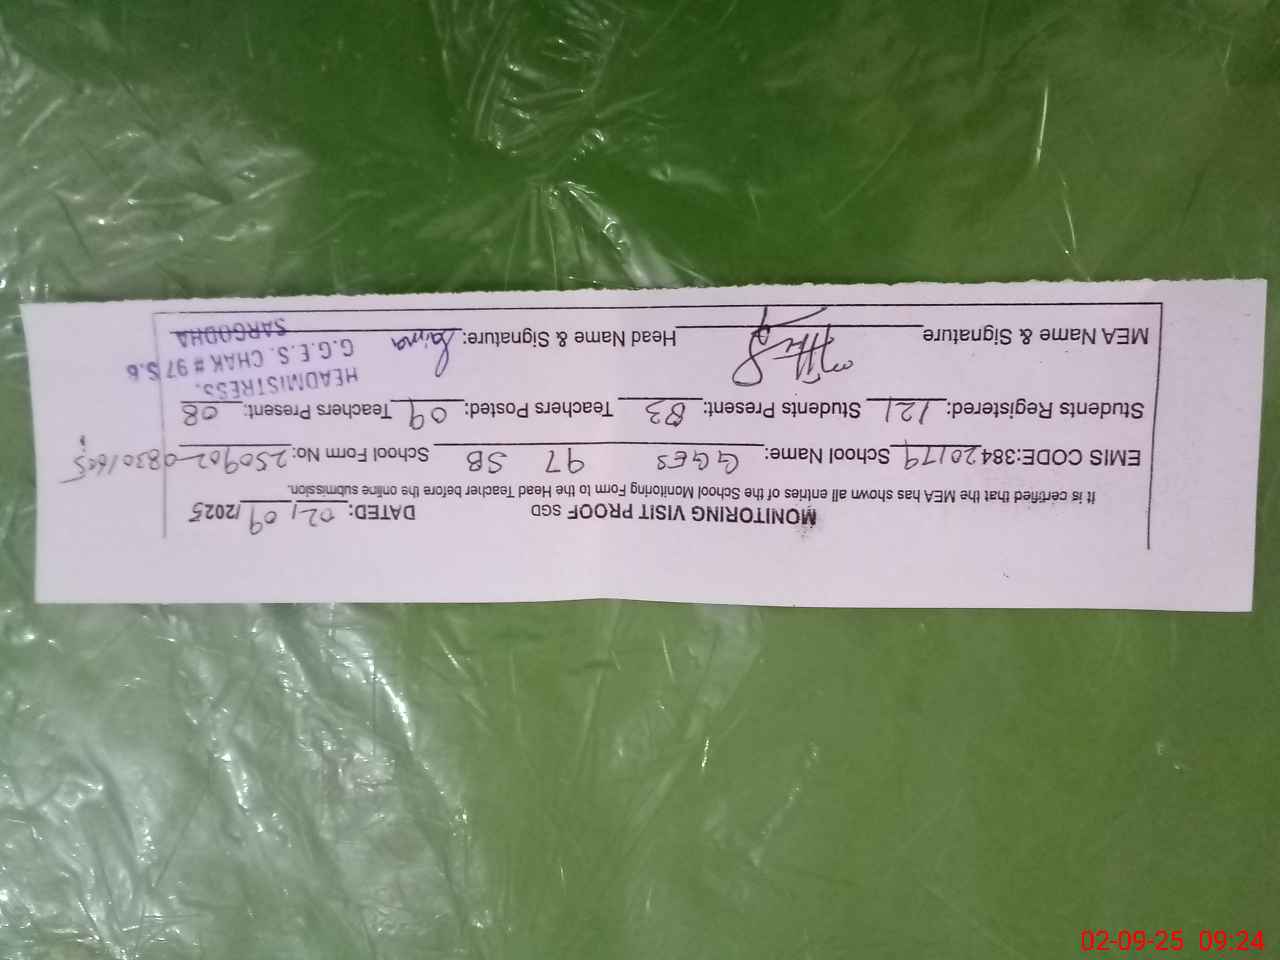 MONITORING VISIT PROOF SGD DATED: 02/09/2025
It is certified that the MEA has shown all entries of the School Monitoring Form to the Head Teacher before the online submission.
EMIS CODE:38420179 School Name: GGES 97 SB School Form No: 250902-08301605
Students Registered: 121 Students Present: 83 Teachers Posted: 09 Teachers Present: 08
MEA Name & Signature Head Name & Signature: Saima
HEADMISTRESS.
G.G.E.S. CHAK # 97 S.B
SARGODHA
02-09-25 09:24